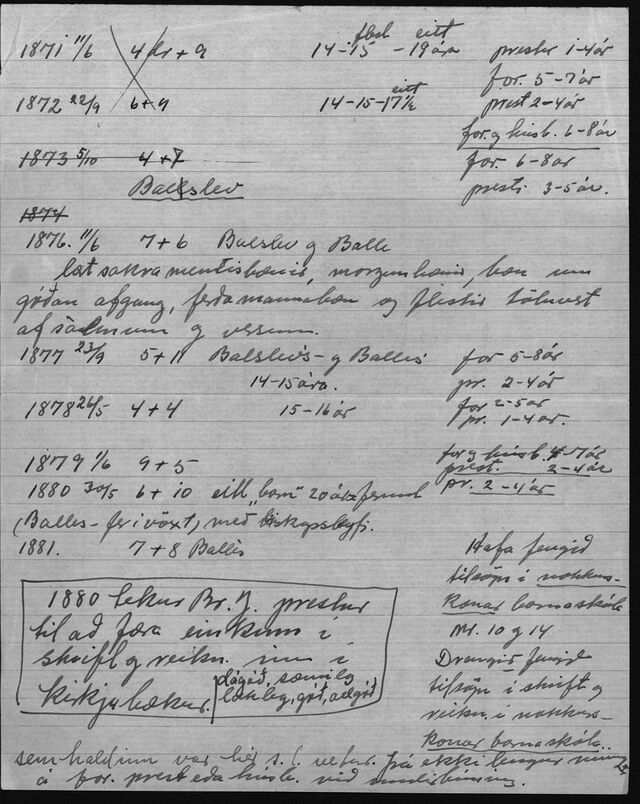 flest eitt
1871 11/6 4 dr + 9 14-15 - 19 ára prestur 1-4 ár
for. 5-7 ár
1872 22/9 6+9 14-15-17½ eitt prest 2-4 ár
for. og húsb. 6-8 ár
1873 5/10 4+7 for. 6-8 ár
Balslev prest. 3-5 ár.
1874
1876. 11/6 7+6 Balslev og Balle
læt sakramentisbænir, morgunbænir, bæn um
góðan afgang, ferðamannabæn og flestir töluvert
af sálmum og versum.
1877 23/9 5+11 Balslevs- og Balles for 5-8 ár
14-15 ára. pr. 2-4 ár
1878 26/5 4+4 15-16 ár for 2-5 ár
pr. 1-4 ár.
1879 1/6 9+5 for og húsb. 4-7 ár
prest. 2-4 ár
1880 30/5 6+10 eitt "barn" 20 ára fermt pr. 2-4 ár
(Balles- fer í vöxt) með biskupsleyfi.
1881. 7+8 Balles Hafa fengið
tilsögn í nokkurs-
konar barnaskóla
Nr. 10 og 14
Drengir fengið
tilsögn í skrift og
reikn. í nokkurs-
konar barnaskóla..
1880 tekur Br. J. prestur
til að færa einkunn í
skrift og reikn. inn í
kirkjubækur. dágóð, sæmileg
lakleg, góð, allgóð
sem haldinn var hér s.l. vetur. Frá ekki lengur
á for. prest eða húsb. við